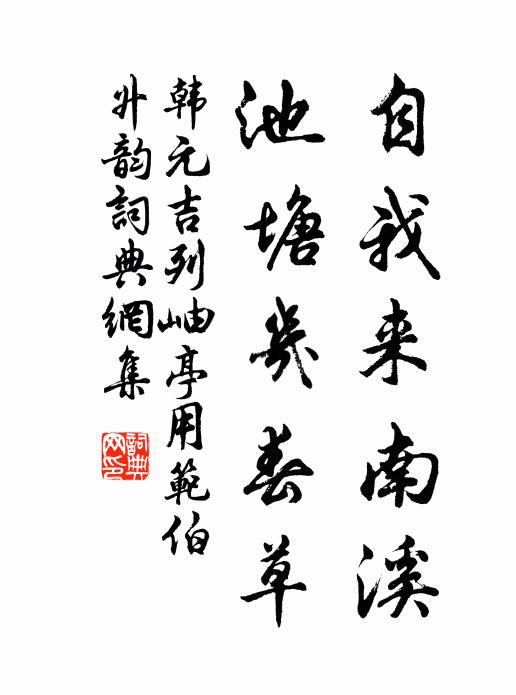 自我来南溪
池塘几春草
韩元吉列岫亭用範伯
升韵詞典網集
詞典
网印